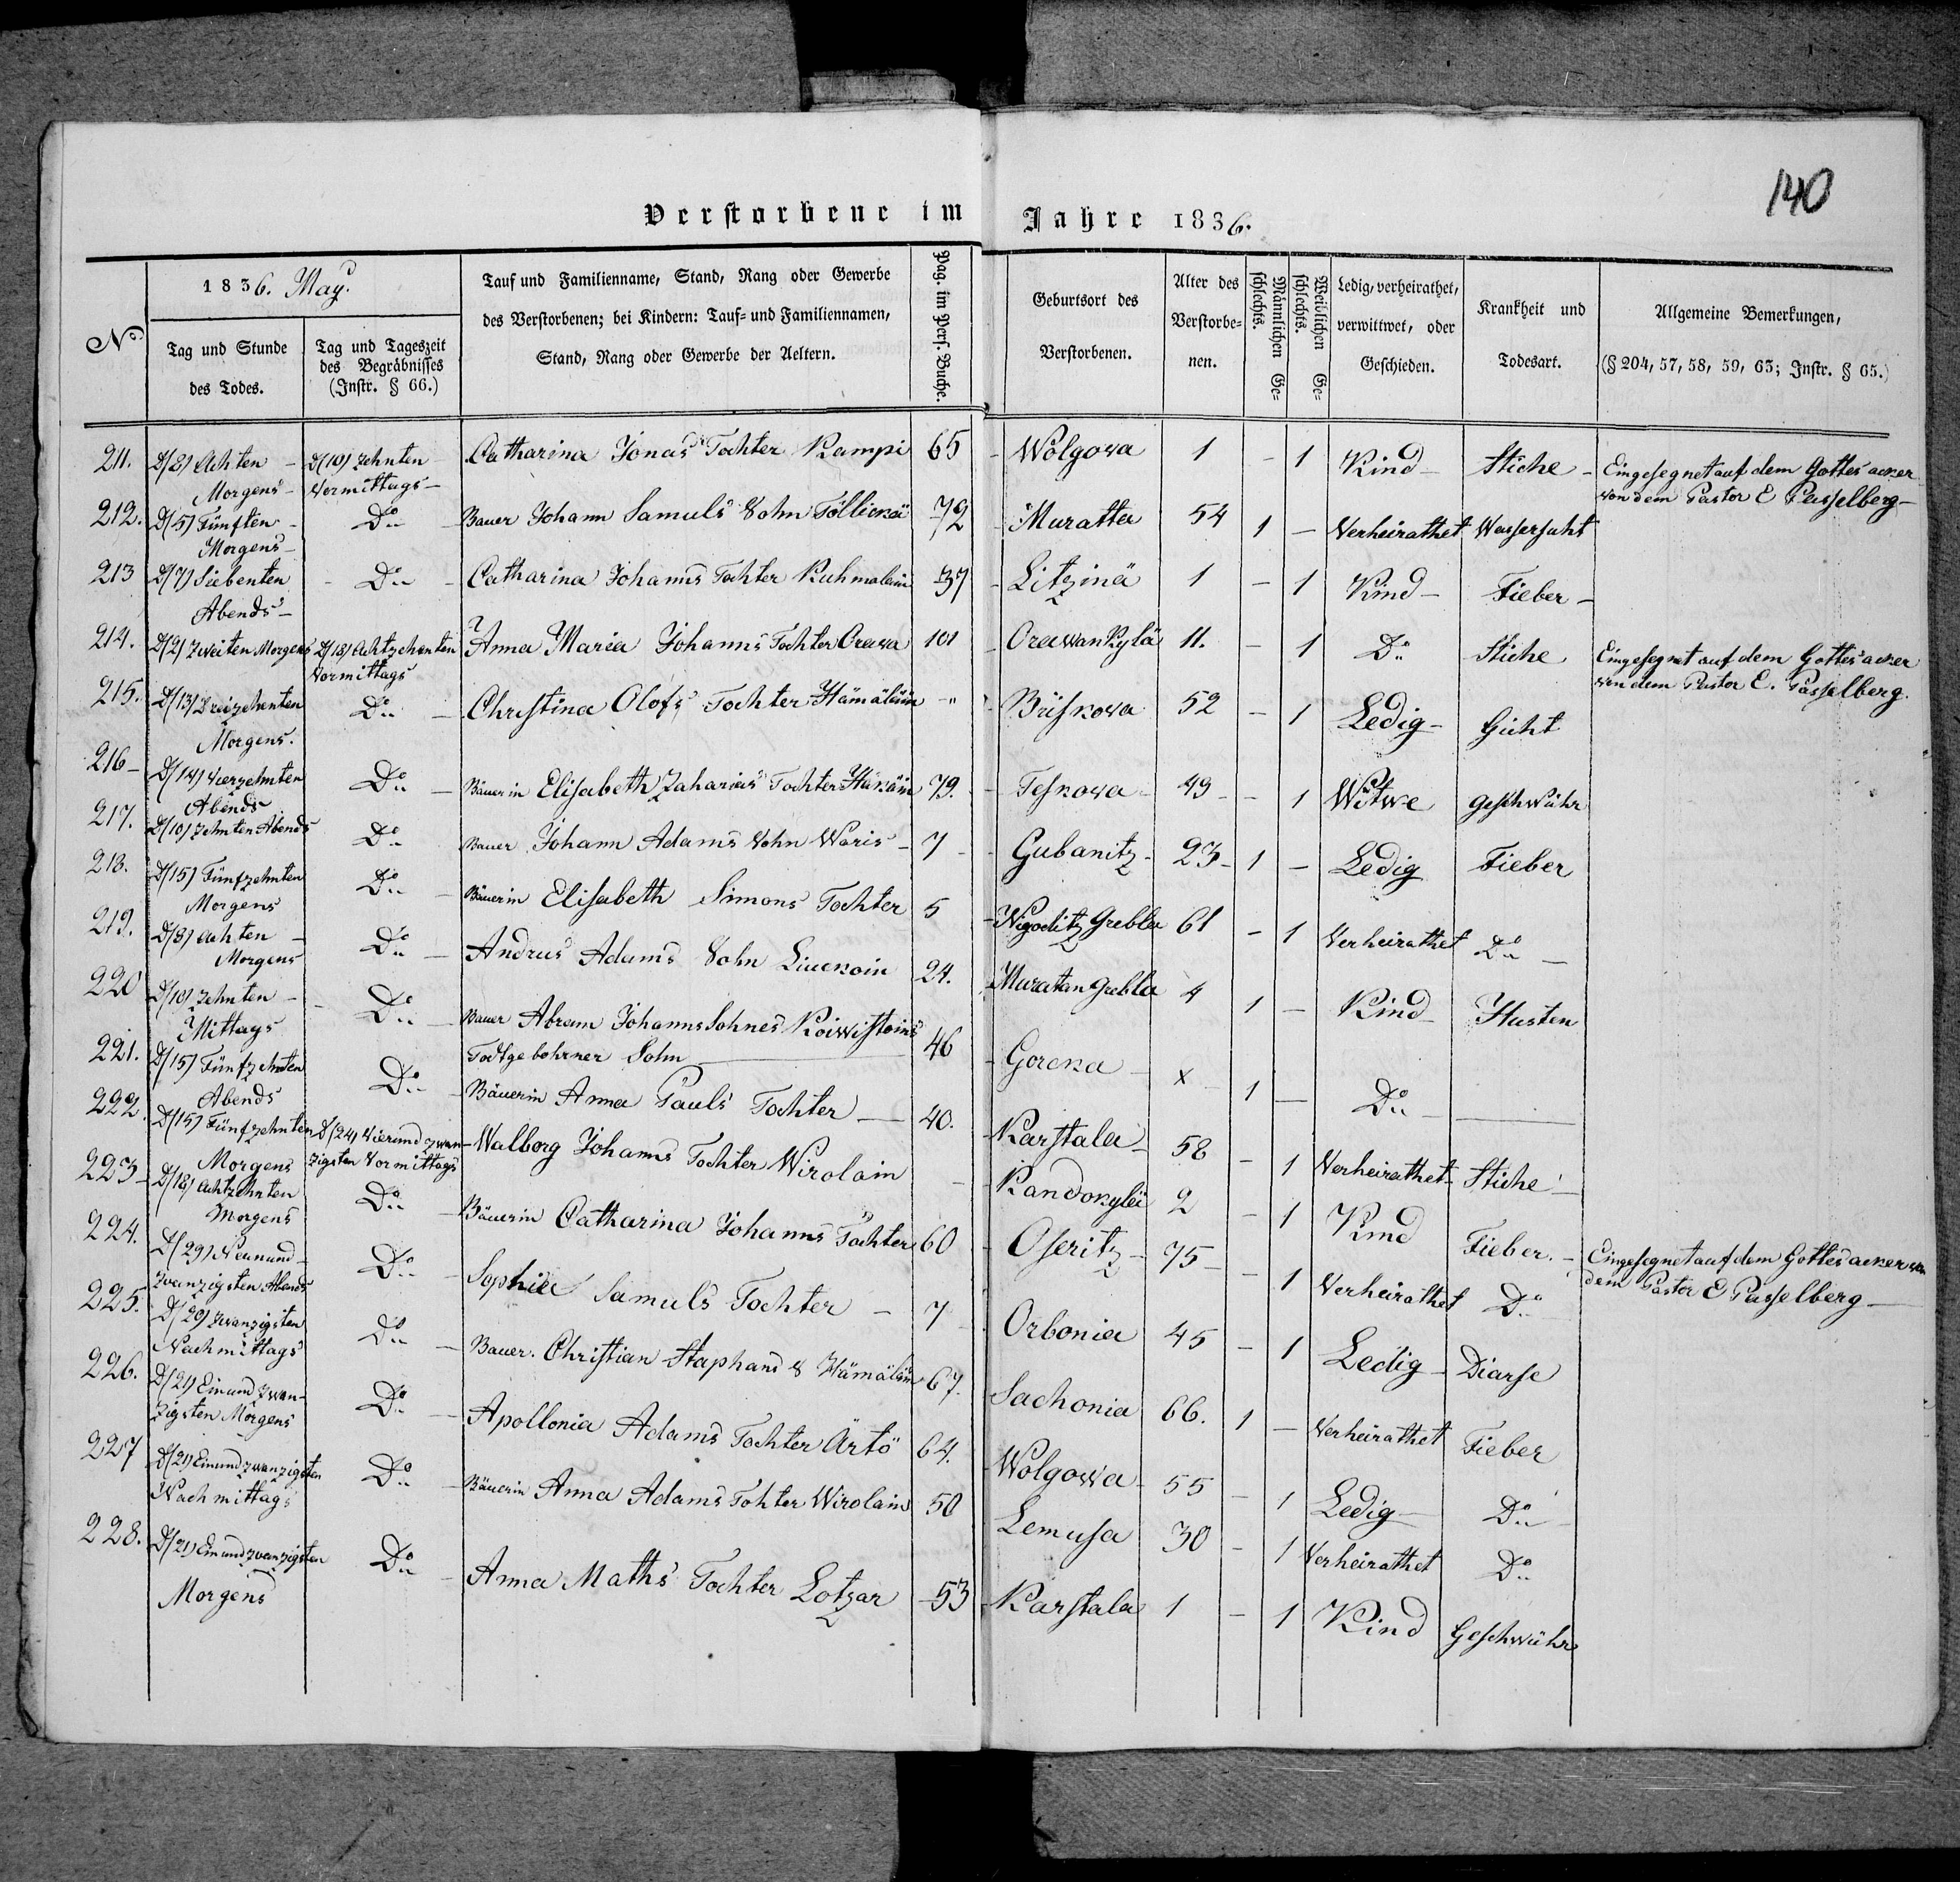 140
Verstorbene im Jahre 1836.
No
1836. May.
Tag und Stunde des Todes.
Tag und Tageszeit des Begräbnisses (Instr. § 66.)
Tauf und Familienname, Stand, Rang oder Gewerbe des Verstorbenen; bei Kindern: Tauf- und Familiennamen, Stand, Rang oder Gewerbe der Aeltern.
Pag. im Pers. Buche.
Geburtsort des Verstorbenen.
Alter des Verstorbenen.
Männlichen Geschlechts.
Weiblichen Geschlechts.
Ledig, verheirathet, verwittwet, oder Geschieden.
Krankheit und Todesart.
Allgemeine Bemerkungen, (§ 204, 57, 58, 59, 63; Instr. § 65.)
211. D(8) Achten Morgens – D(10) Zehnten Vormittags – Catharina Jonas Tochter Kampi 65 – Wolgowa 1 – 1 Kind – Stiche – Eingesegnet auf dem Gottes acker von dem Pastor E Passelberg –
212. D(5) Fünften Morgens – Do – Bauer Johann Samuls Sohn Töllickä 72 – Muratta 54 1 – Verheirathet Wassersuht
213 D(7) Siebenten Abends – Do – Catharina Johanns Tochter Kuhmalain 37 – Litzinä 1 – 1 Kind – Fieber –
214. D(2) Zweiten Morgens D(18) Achtzehenten Vormittags Anna Maria Johanns Tochter Orawa 101 – Orawankylä 11. – 1 Do Stiche Eingesegnet auf dem Gottes acker von dem Pastor E. Passelberg.
215. D(13) Dreizehenten Morgens. Do – Christina Olofs Tochter Hämäläin – " – Briskowa 52 – 1 Ledig – Gicht
216 – D(14) Vierzehnten Abends Do – Bäuerin Elisabeth Zaharias Tochter Häkäin 79. – Teskowa 49 – – 1 Witwe geschwühr
217. D(10) Zehnten Abends Do Bauer Johann Adams Sohn Waris – 7 – Gubanitz – 23 – 1 – Ledig Fieber
218. D(15) Fünfzehnten Morgens Do – Bäuerin Elisabeth Simons Tochter 5 – Wigoditz Grebla 61 – 1 Verheirathet Do –
219. D(8) Achten Morgens Do – Andrus Adams Sohn Liuckoin 24. Muratan Grebla 4 1 – Kind – Husten
220 D(10) Zehnten – Mittags Do – Bauer Abram Johanns Sohnes Koiwistoins Todtgebohrner Sohn – 46 – Gorcka – x – 1 – Do –
221. D(15) Fünfzehnten Abends Do – Bäuerin Anna Pauls Tochter – 40. – Karstala 58 – 1 Verheirathet – Stiche –
222. D(15) Fünfzehnten Morgens D(24) Vierundzwanzigsten Vormittags – Walborg Johanns Tochter Wirolain – Kandokylä 2 – 1 Kind Fieber. – Eingesegnet auf dem Gottes acker von dem Pastor E Passelberg –
223 – D(18) Achtzehnten Morgens Do – Bäuerin Catharina Johanns Tochter 60 – Oseritz – 75 – – 1 Verheirathet Do –
224. D(29) Neunundzwanzigsten Abends Do – Sophia Samuls Tochter – 7 – Orbonia 45 – 1 Ledig – Diarse
225. D(20) Zwanzigsten Nachmittags Do – Bauer. Christian Staphans S Hämäläin 67. Sachonia 66. 1 – Verheirathet Fieber
226. D(21) Einundzwanzigsten Morgens Do – Apollonia Adams Tochter Ärtö 64. Wolgowa – 55 – 1 Ledig – Do
227 D(21) Einundzwanzigsten Nachmittags Do – Bäuerin Anna Adams Tohter Wirolain 50 Lemusa 30 – 1 Verheirathet Do
228. D(21) Einundzwanzigsten Morgens Do – Anna Maths Tochter Lotzar – 53 – Karstala 1 – 1 Kind Geschwühr